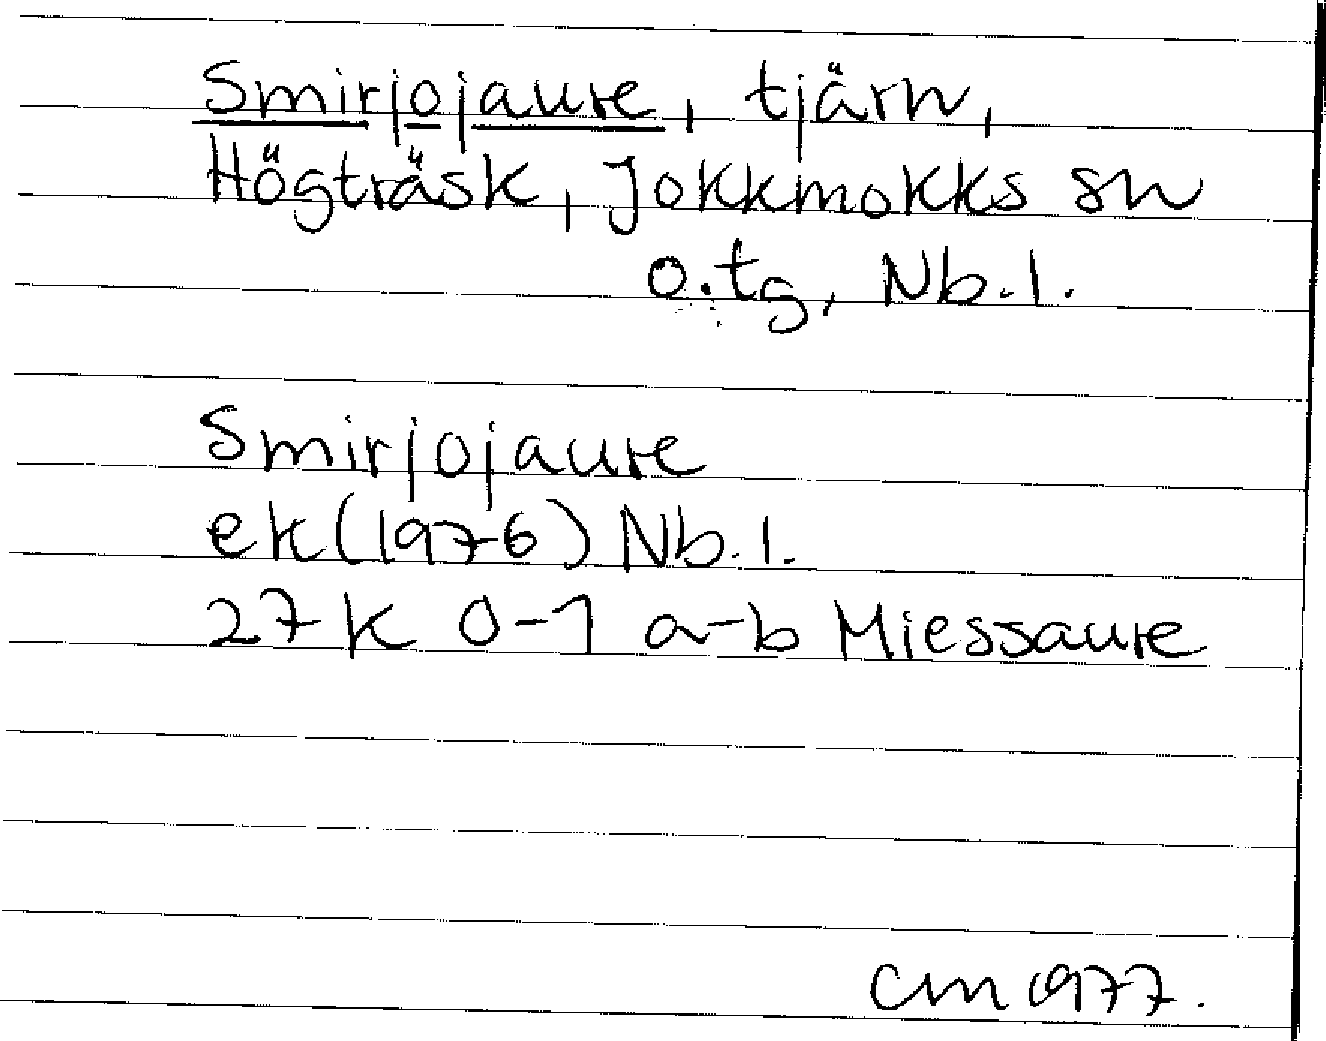 Smirjojaure, tjärn,
Högträsk, Jokkmokks sn
o.tg, Nb.l.
Smirjojaure
ek(1976) Nb.l.
27 K 0-1 a-b Miessaure
CM 1977.